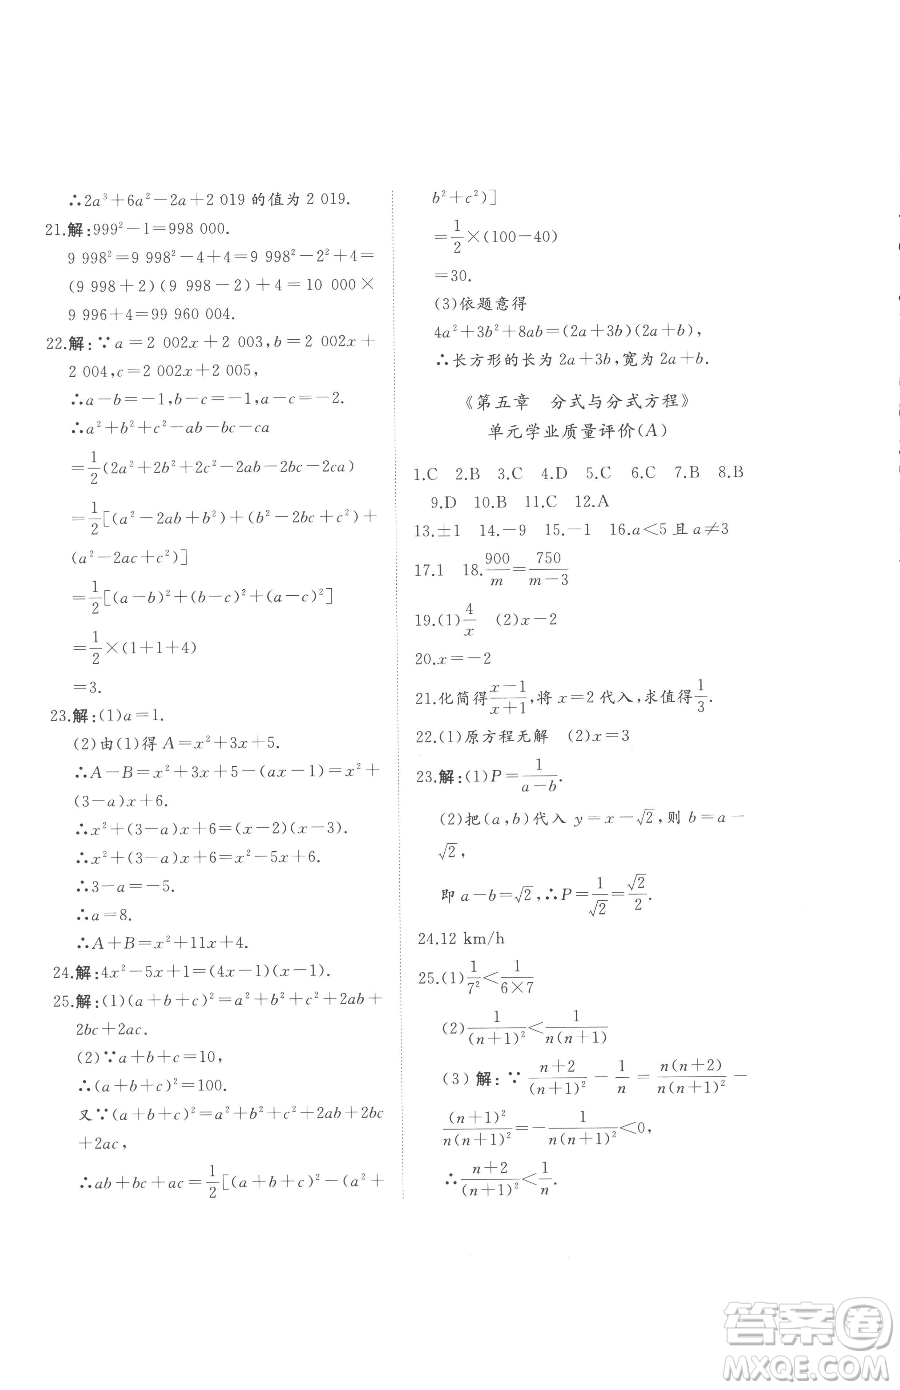 ∴2a³+6a²-2a+2 019的值为2 019.
21.解:999²-1=998 000.
9 998²=9 998²-4+4=9 998²-2²+4=
(9 998+2)(9 998-2)+4=10 000×
9 996+4=99 960 004.
22.解:∵a=2 002x+2 003,b=2 002x+
2 004,c=2 002x+2 005,
∴a-b=-1,b-c=-1,a-c=-2.
∴a²+b²+c²-ab-bc-ca
=1/2(2a²+2b²+2c²-2ab-2bc-2ca)
=1/2[(a²-2ab+b²)+(b²-2bc+c²)+
(a²-2ac+c²)]
=1/2[(a-b)²+(b-c)²+(a-c)²]
=1/2×(1+1+4)
=3.
23.解:(1)a=1.
(2)由(1)得A=x²+3x+5.
∴A-B=x²+3x+5-(ax-1)=x²+
(3-a)x+6.
∴x²+(3-a)x+6=(x-2)(x-3).
∴x²+(3-a)x+6=x²-5x+6.
∴3-a=-5.
∴a=8.
∴A+B=x²+11x+4.
24.解:4x²-5x+1=(4x-1)(x-1).
25.解:(1)(a+b+c)²=a²+b²+c²+2ab+
2bc+2ac.
(2)∵a+b+c=10,
∴(a+b+c)²=100.
又∵(a+b+c)²=a²+b²+c²+2ab+2bc
+2ac,
∴ab+bc+ac=1/2[(a+b+c)²-(a²+
b²+c²)]
=1/2×(100-40)
=30.
(3)依题意得
4a²+3b²+8ab=(2a+3b)(2a+b),
∴长方形的长为2a+3b,宽为2a+b.
《第五章 分式与分式方程》
单元学业质量评价(A)
1.C 2.B 3.C 4.D 5.C 6.C 7.B 8.B
9.D 10.B 11.C 12.A
13.±1 14.-9 15.-1 16.a<5且a≠3
17.1 18.900/m=750/(m-3)
19.(1)4/x (2)x-2
20.x=-2
21.化简得(x-1)/(x+1),将x=2代入,求值得1/3.
22.(1)原方程无解 (2)x=3
23.解:(1)P=1/(a-b).
(2)把(a,b)代入y=x-√2,则b=a-
√2,
即a-b=√2,∴P=1/√2=√2/2.
24.12 km/h
25.(1)1/7²<1/(6×7)
(2)1/(n+1)²<1/(n(n+1))
(3)解:∵(n+2)/(n+1)²-1/n=n(n+2)/(n(n+1)²)-
(n+1)²/(n(n+1)²)=-1/(n(n+1)²)<0,
∴(n+2)/(n+1)²<1/n.
答案圈
MXQE.COM